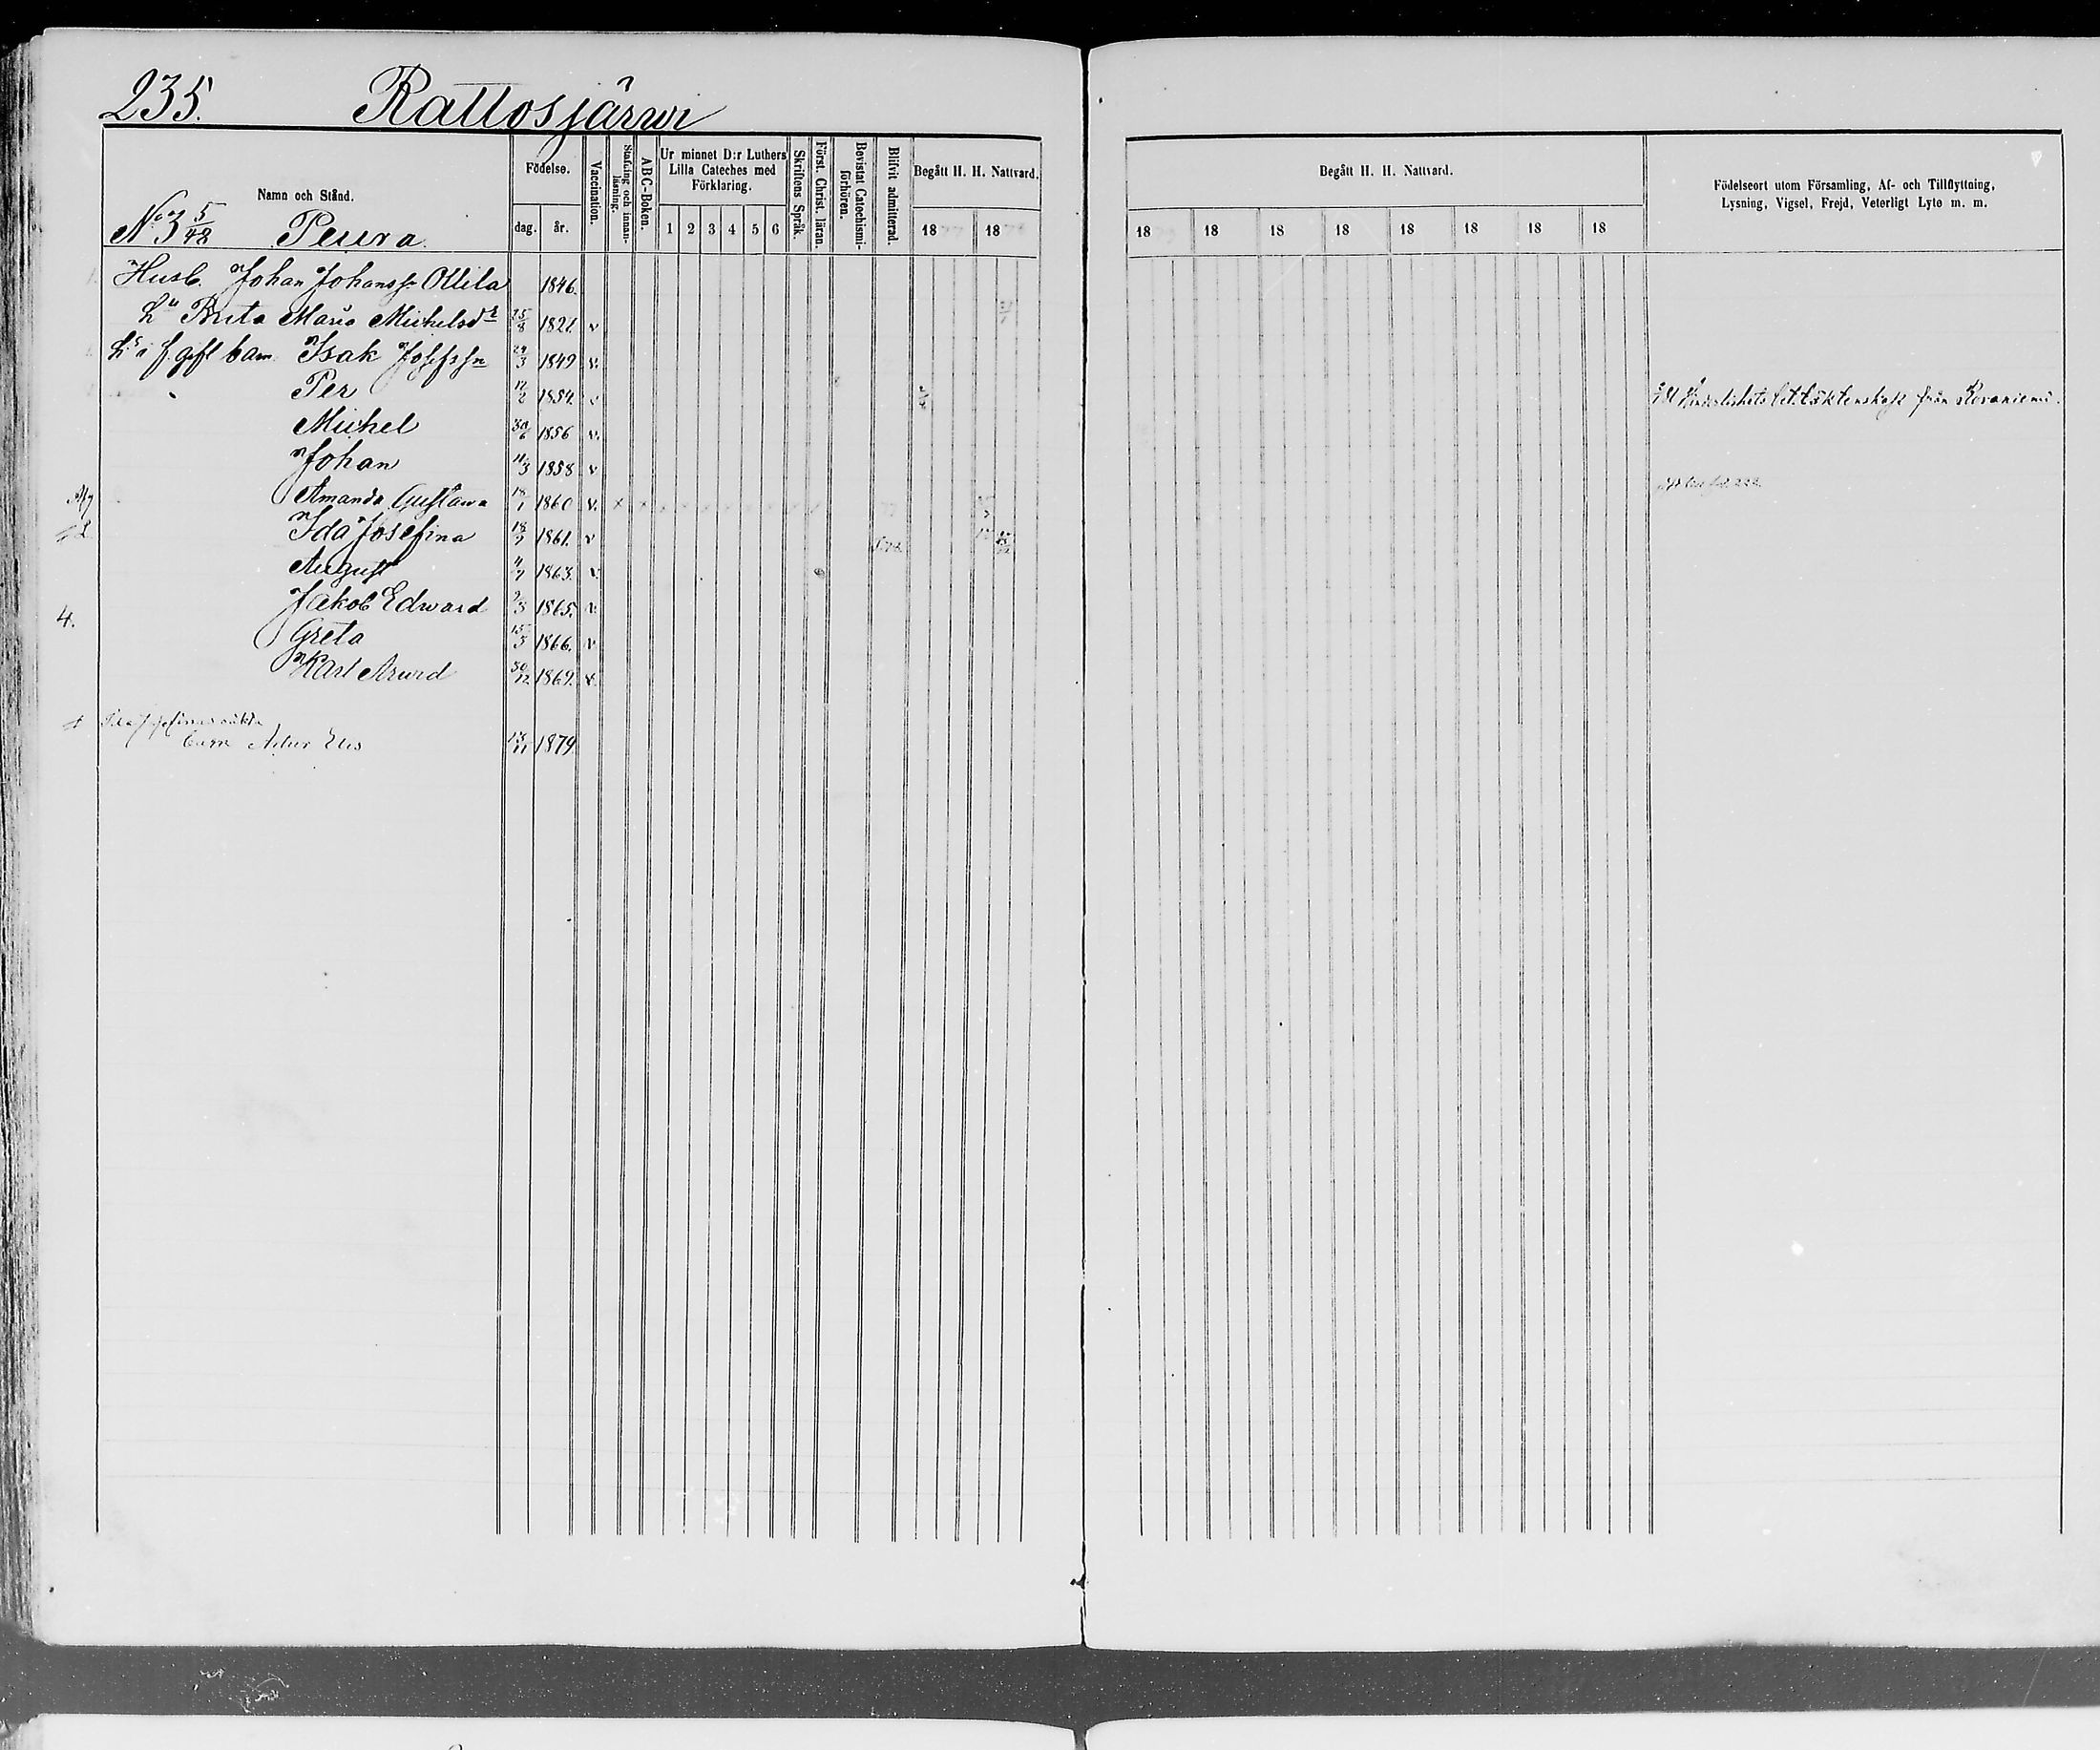 235. Rattosjärwi
Namn och Stånd.
Födelse.
dag. år.
Vaccination.
Stafning och innan-
läsning.
ABC-Boken.
Ur minnet D:r Luthers
Lilla Cateches med
Förklaring.
1 2 3 4 5 6
Skriftens Språk.
Först. Christ. läran.
Bevistat Catechismi-
förhören.
Blifvit admitterad.
Begått H. H. Nattvard.
18 18
Begått H. H. Nattvard.
18 18 18 18 18 18 18 18
Födelseort utom Församling, Af- och Tillflyttning,
Lysning, Vigsel, Frejd, Veterligt Lyte m. m.
No 3 5/48 Peura
Husb. Johan Johanss. Ollila 1846.
h:u Brita Maria Michelsdr 25/8 1821 v
h:s i f. gift barn Isak Josefss:n 29/3 1849 v.
Per 12/2 1854. v
från Rovaniemi.
Michel 30/6 1856 v.
Johan 11/3 1858 v
Amanda Gustawa 18/1 1860 v. x x
Ida Josefina 18/7 1861. v
August 4/7 1863. v.
Jakob Edward 2/3 1865. v.
4.
Greta 15/3 1866. v
Karl Arwid 30/12 1869. v.
Ida Josefinas oäkta
barn Artur Elis 13/11 1879